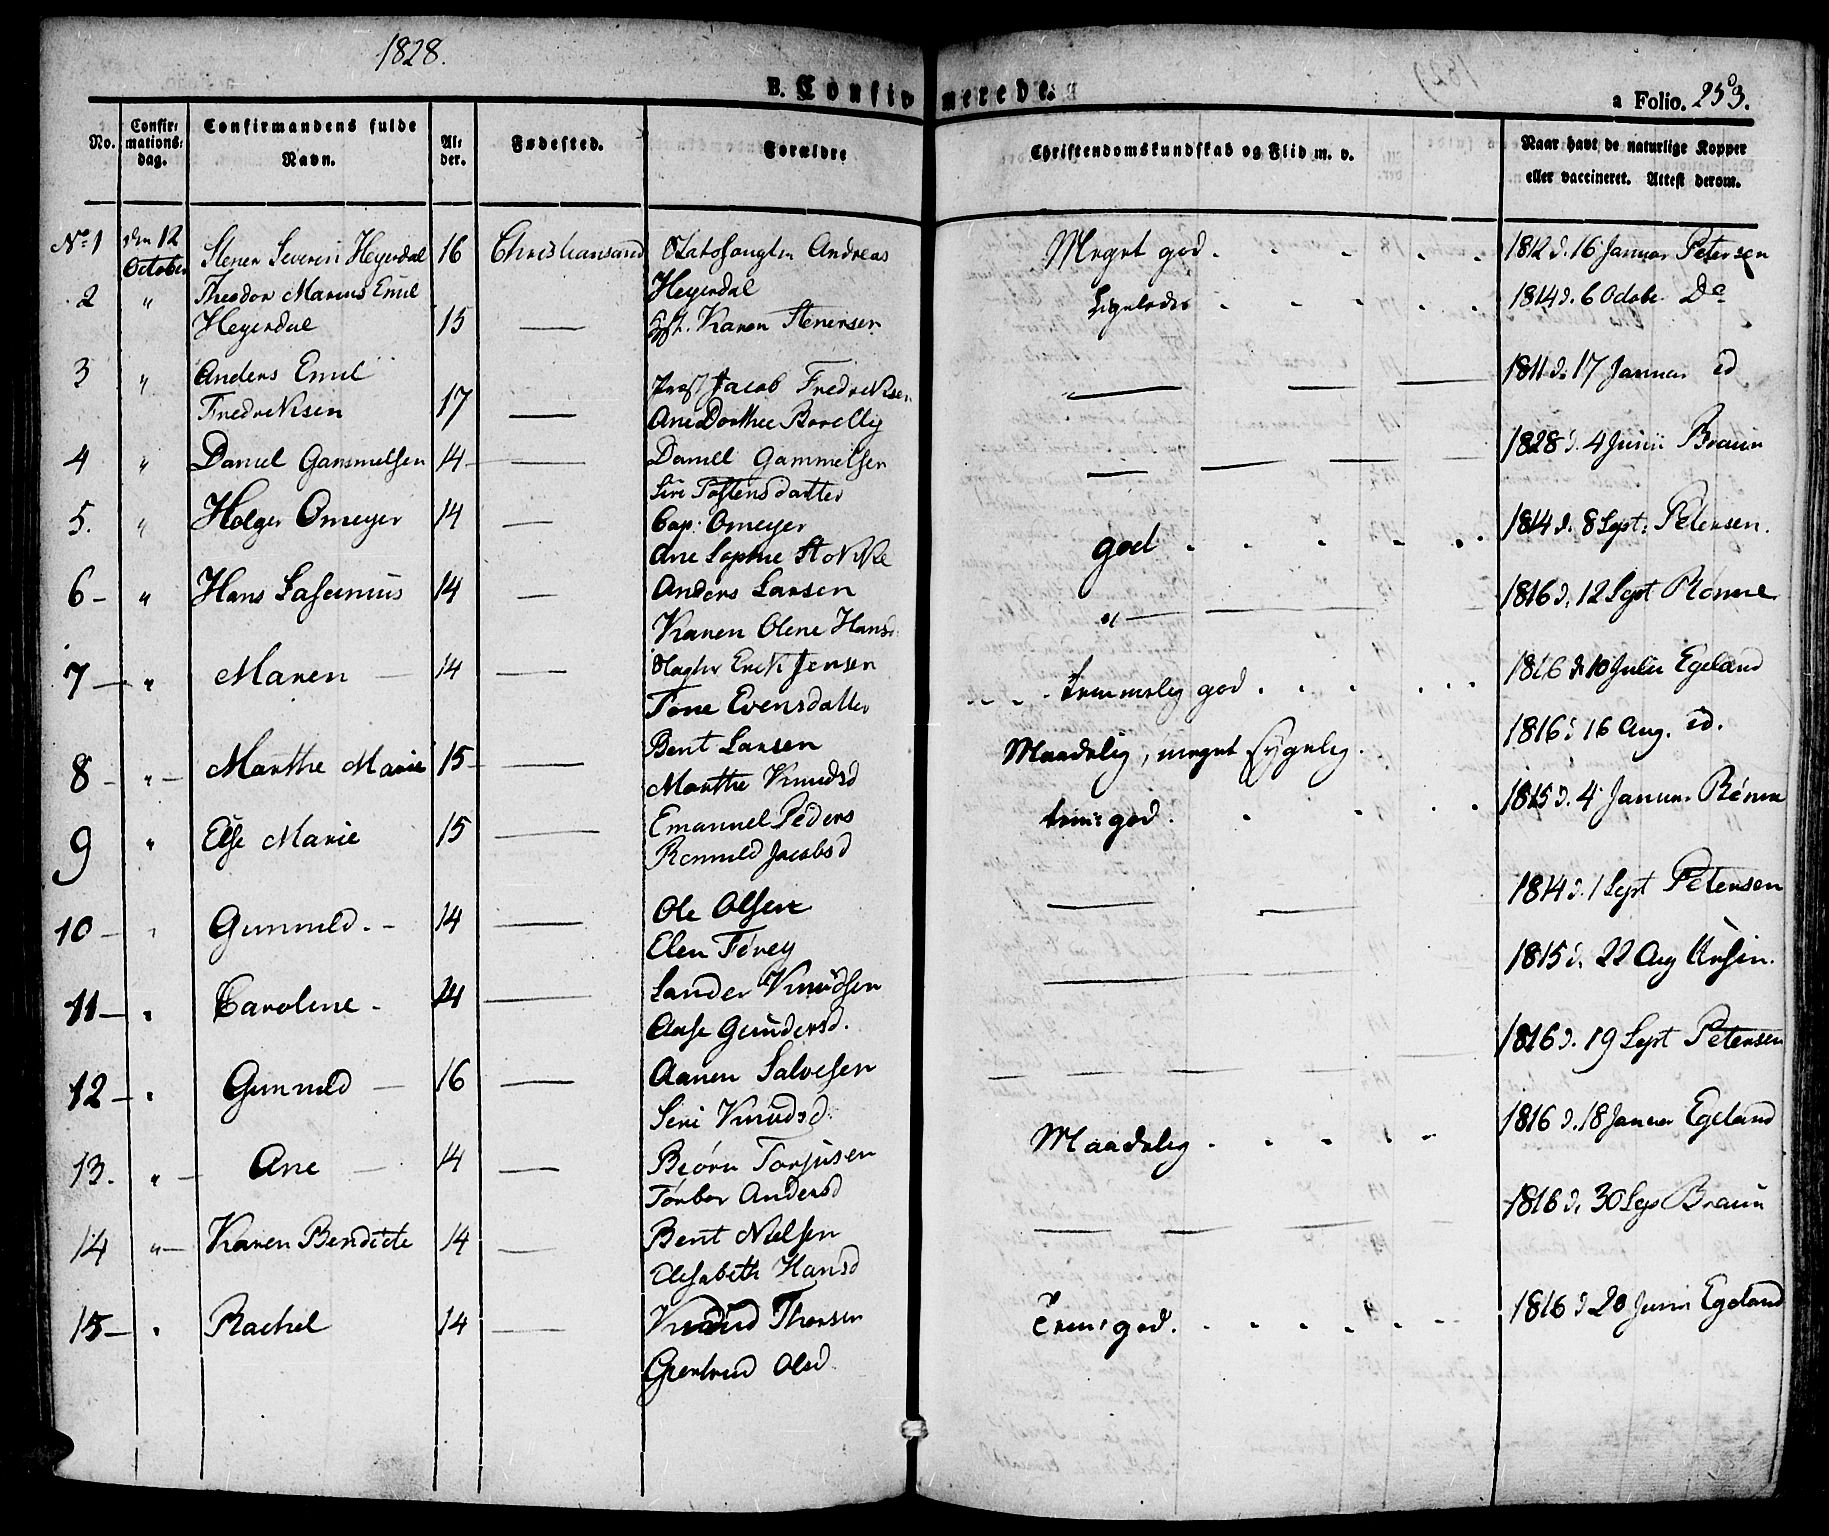 1828.
B. Confirmerede.
a Folio. 253.
No. Confirmationsdag. Confirmandens fulde Navn. Alder. Fødested. Forældre Christendomskundskab og Flid m. v. Naar havt de naturlige Kopper eller vaccineret. Attest derom.
No 1 den 12 October Stener Severin Heyerdal 16 Christiansand Andreas Heyerdal Meget god. 1812 d. 16 Januar Petersen
2 " Theodor Marius Emil Heyerdal 15 — Karen Stenersen Ligeledes 1814 d. 6 Octobr Do
3 " Anders Emil Fredriksen 17 — Jacob Fredriksen Ane Dorthee Borelly — 1811 d. 17 Januar id
4 " Daniel Gammelsen 14 — Daniel Gammelsen Siri Tostensdatter — 1828 d. 4 Junii Braun
5. " Holger Omeyer 14 — Cap: Omeyer Ane Sophie Stokke god 1814 d. 8 Sept: Petersen.
6 — " Hans Laserinius 14 — Anders Larsen Karen Olene Hansd: " — 1816 d. 12 Sept Rønne
7 — " Maren — 14 — Erik Jensen Tone Evensdatter temmelig god. 1816 d. 10 Julii Egeland
8 — " — Marthe Marie 15 — Bent Larsen Marthe Knudsd Maadelig, meget sygelig. 1816 d 16 Aug. id.
9 " Else Marie 15 — Emanuel Peders Romuld Jacobsd tem: god. 1815 d. 4 Januar Rønne
10 — " Gunnild. - 14 — Ole Olsen Elen Førey — 1814 d. 1 Sept Petersen
11 — " Caroline - 14 — Sander Knudsen Aase Gundersd. — 1815 d. 22 Aug Ursin.
12 — " Gunnild — 16 — Aanen Salvesen Siri Knudsd. — 1816 d. 19 Sept Petersen
13. " — Ane — 14 — Biørn Torjusen Torbor Andersd Maadelig 1816 d. 18 Januar Egeland
14 " — Karen Bendicte 14 — Bent Nielsen Elisabeth Hansd — 1816 d. 30 Sep Braun
15 — " Rachel 14 — Knud Thorsen Giertrud Olsd. Tem: god. 1816 d 20 Junii Egeland